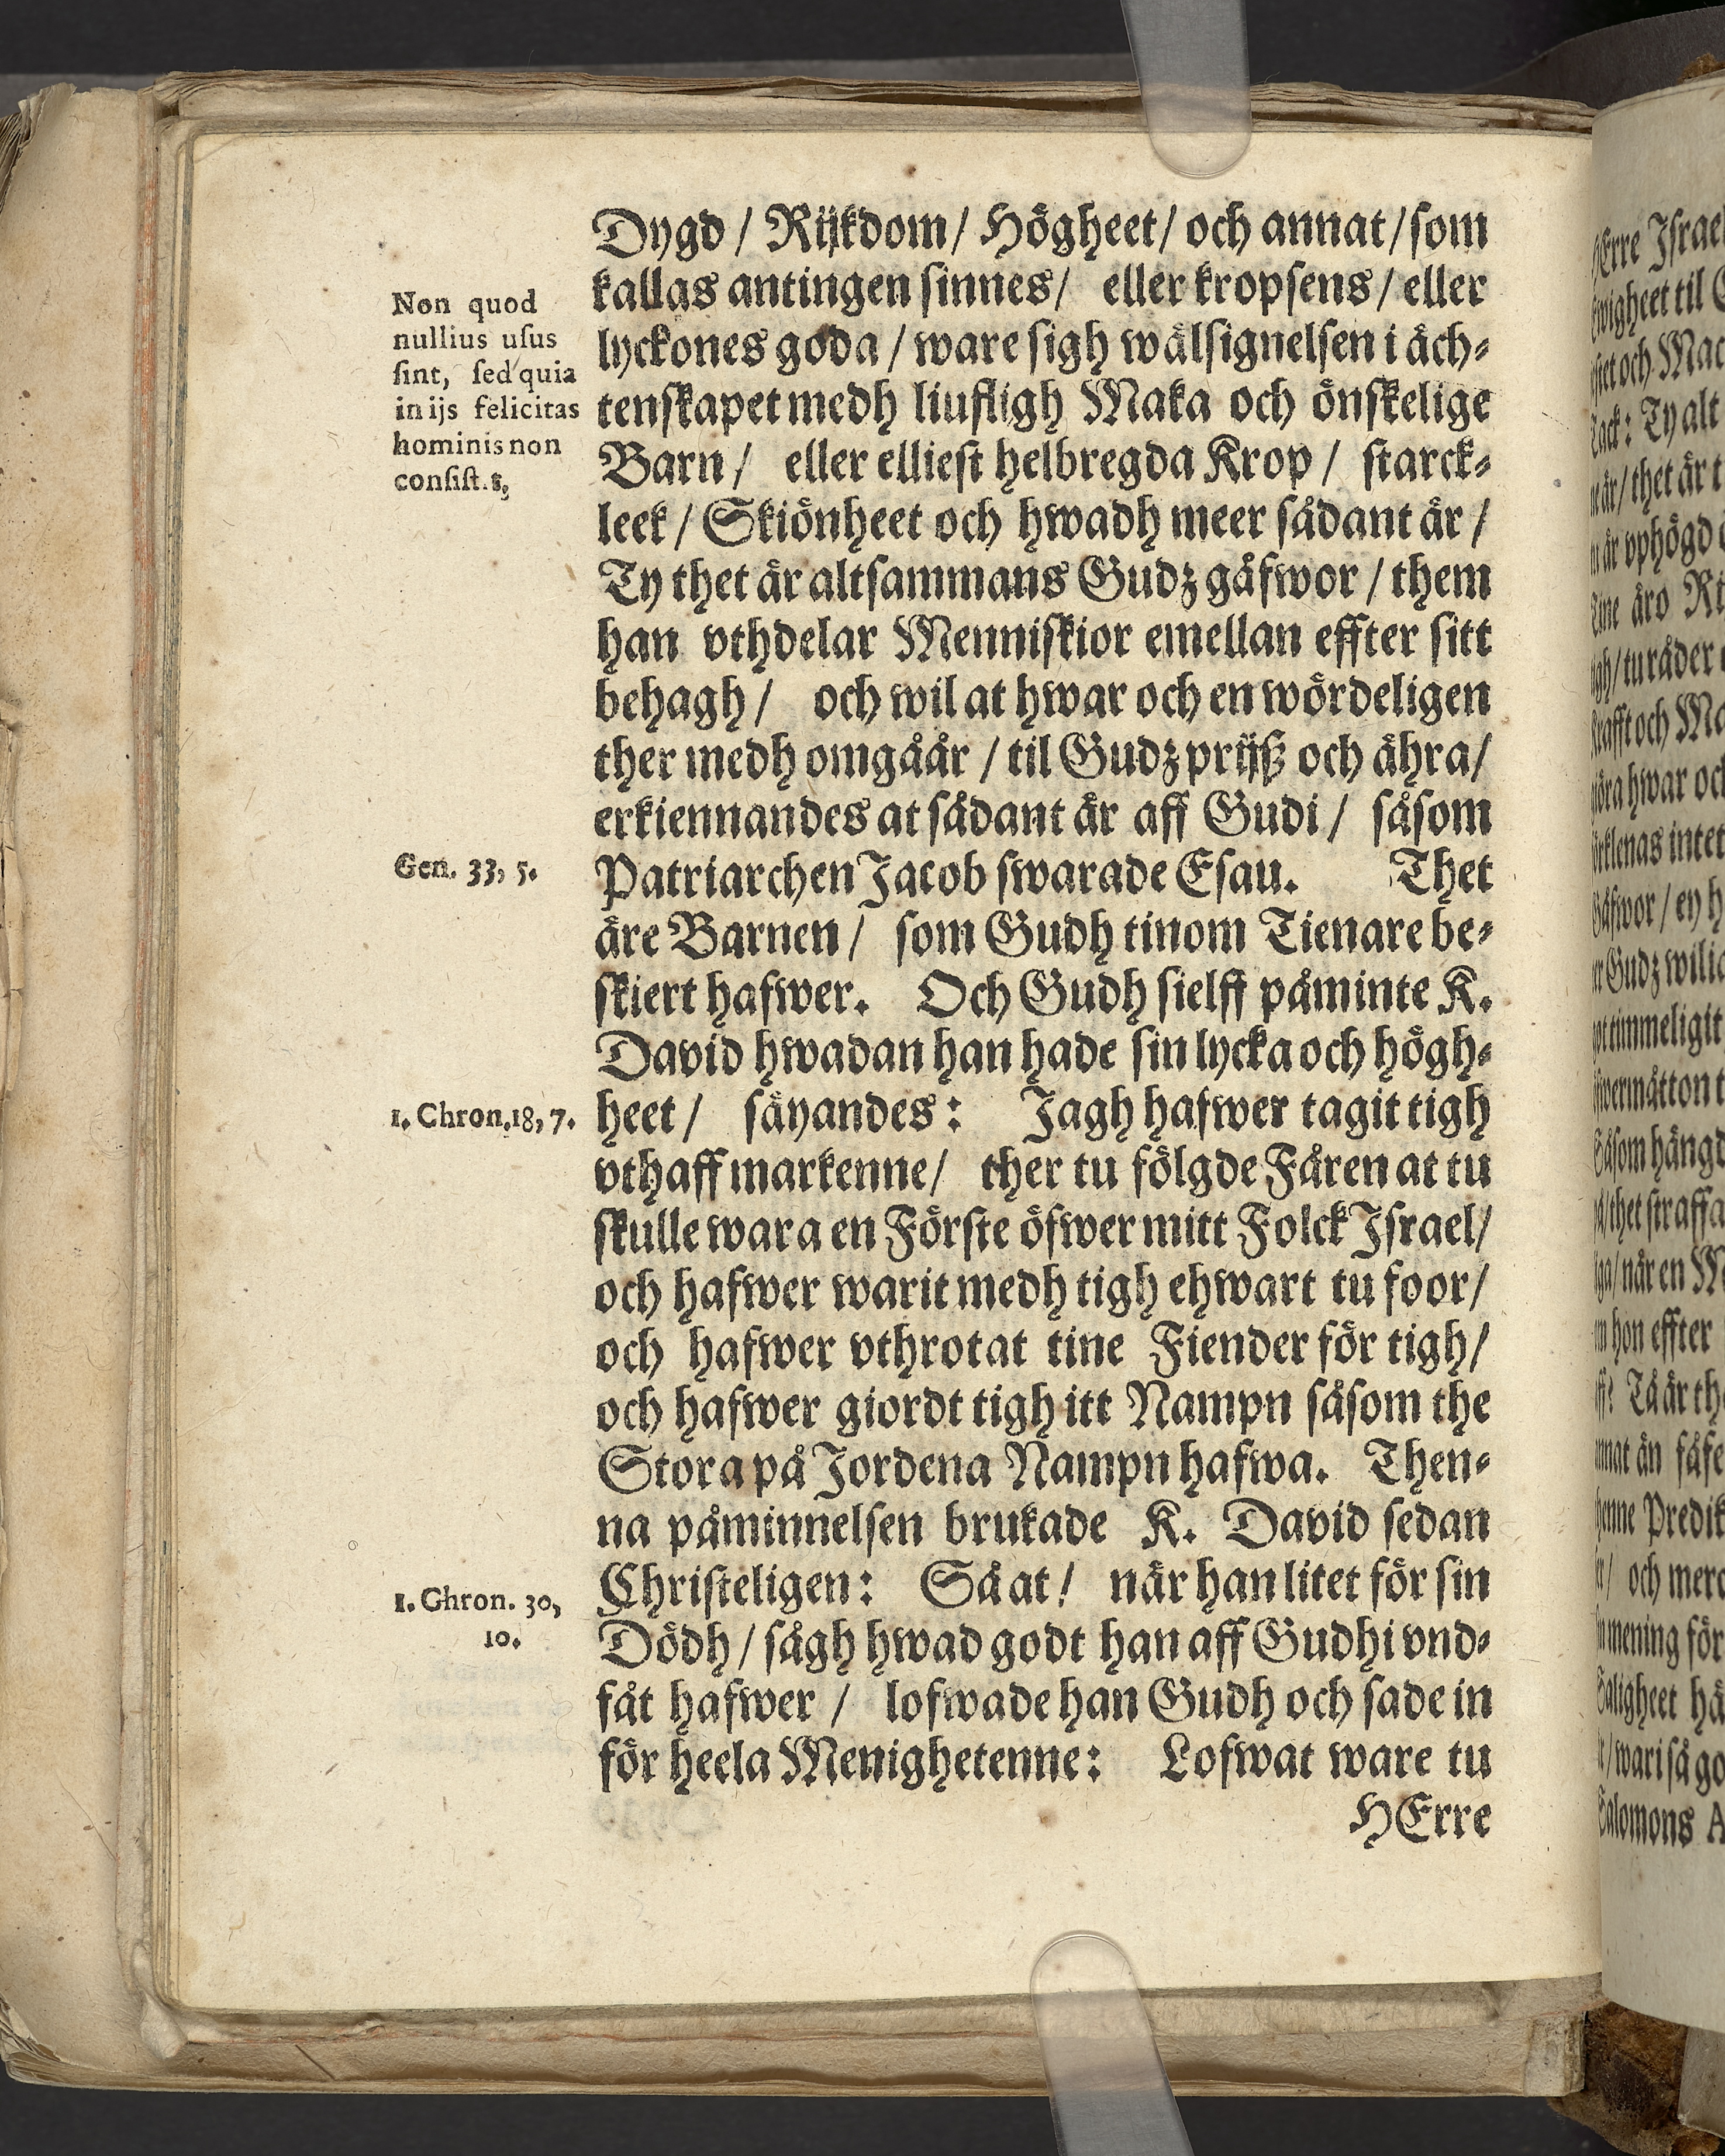 Dygd / Rijkdom / Högheet / och annat / som
kallas antingen sinnes / eller kropsens / eller
lyckones goda / ware sigh wälsignelsen i äch-
tenskapet medh liufligh Maka och önskelige
Barn / eller elliest helbregda Krop / starck-
leek / Skiönheet och hwadh meer sådant är /
Ty thet är altsammans Gudz gåfwor / them
han vthdelar Menniskior emellan effter sitt
behagh / och wil at hwar och en wördeligen
ther medh omgåår / til Gudz prijß och ähra /
erkiennandes at sådant är aff Gudi / såsom
Patriarchen Jacob swarade Esau. Thet
äre Barnen / som Gudh tinom Tienare be-
skiert hafwer. Och Gudh sielff påminte K.
David hwadan han hade sin lycka och högh-
heet / säyandes: Jagh hafwer tagit tigh
vthaff markenne / ther tu fölgde Fåren at tu
skulle wara en Förste öfwer mitt Folck Israel /
och hafwer warit medh tigh ehwart tu foor /
och hafwer vthrotat tine Fiender för tigh /
och hafwer giordt tigh itt Nampn såsom the
Stora på Jordena Nampn hafwa. Then-
na påminnelsen brukade K. David sedan
Christeligen: Så at / när han litet för sin
Dödh / sågh hwad godt han aff Gudhi vnd-
fåt hafwer / lofwade han Gudh och sade in
för heela Menighetenne: Lofwat ware tu
HErre
Non quod
nullius uſus
ſint, ſed quia
in ijs felicitas
hominis non
conſiſt.
Gen. 33, 5.
1. Chron. 18, 7.
1. Ghron. 30,
10.